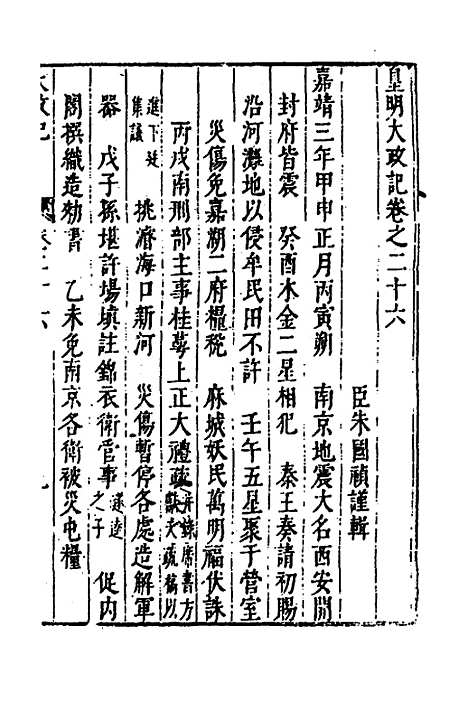 皇明大政記卷之二十六
臣朱國禎謹輯
嘉靖三年甲申正月丙寅朔　南京地震大名西安開
封府皆震　癸酉木金二星相犯　秦王奏請初賜
沿河灘地以侵牟民田不許　壬午五星聚于營室
災傷免嘉湖二府糧稅　麻城妖民萬明福伏誅
丙戌南刑部主事桂萼上正大禮疏并錄席書方獻夫疏稿以
進下廷集議　挑濬海口新河　災傷暫停各處造解軍
器　戊子孫堪許場填註錦衣衛管事遂逵之子　促內
閣撰織造勑書　乙未免南京各衛被災屯糧
大政記　卷二十六　一